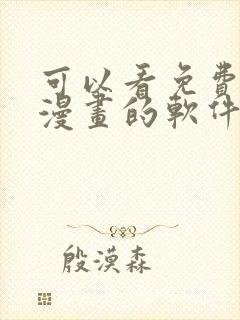 可以看免費
漫畫的軟件
殷漠森